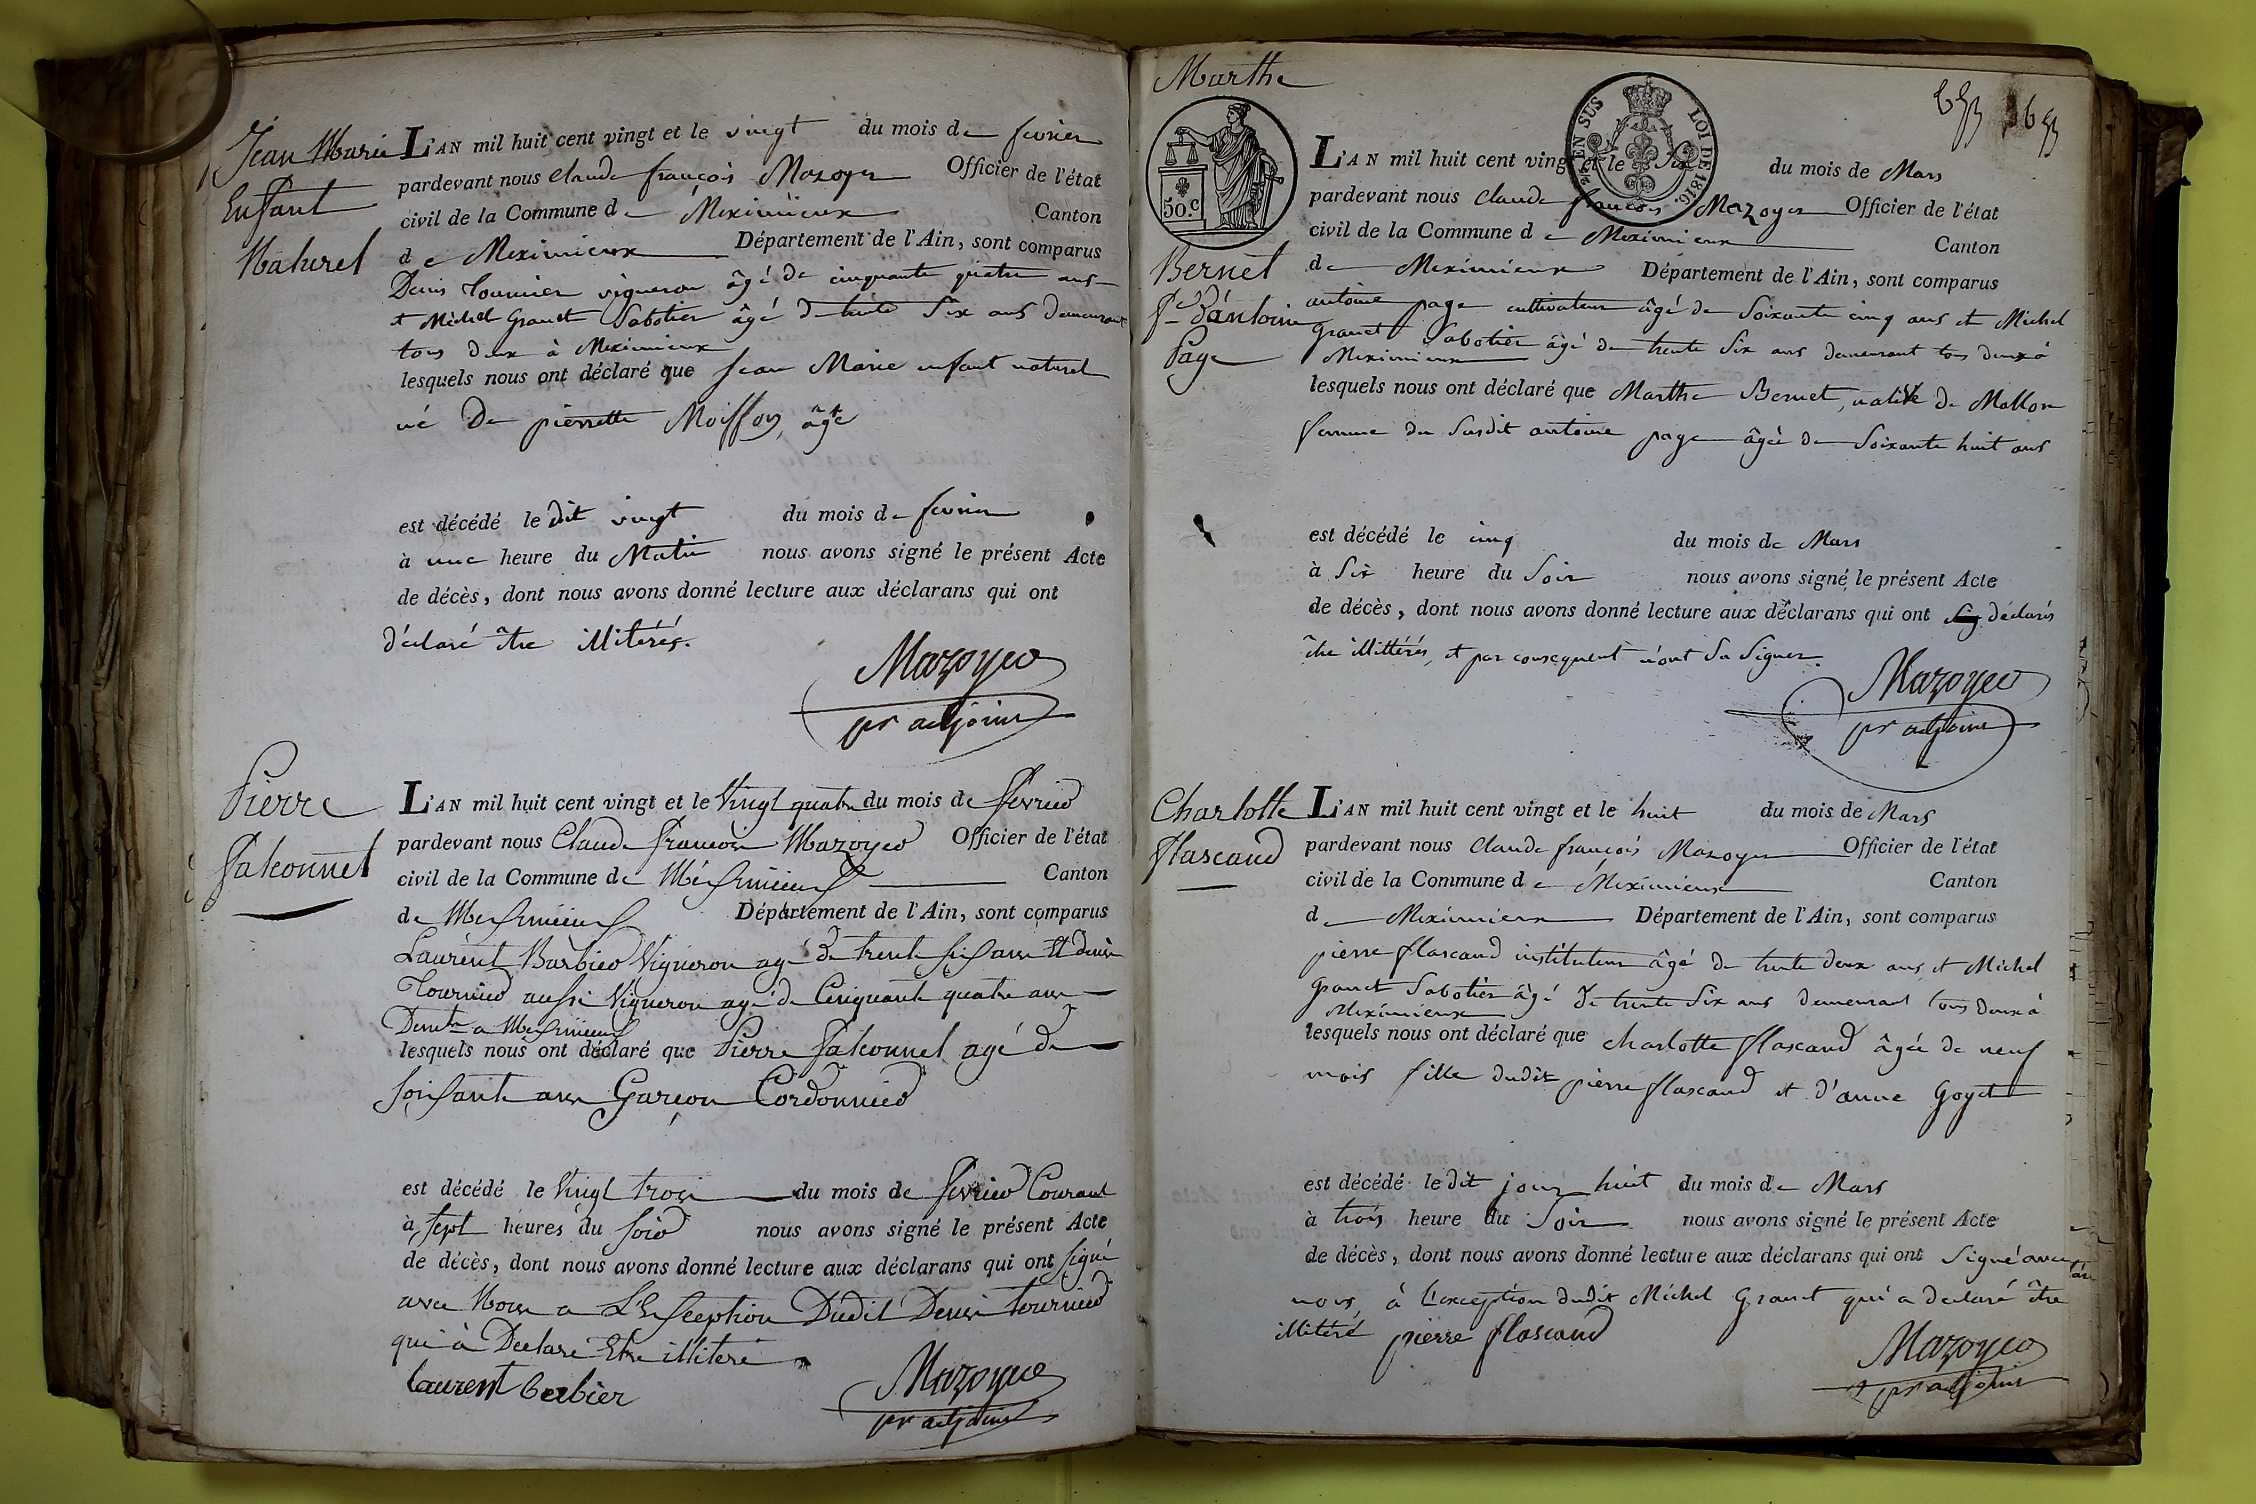 Jean Marie
Enfant
Naturel
L'AN mil huit cent vingt et le vingt du mois de fevrier
pardevant nous Claude françois Mazoyer Officier de l'état
civil de la Commune de Meximieux Canton
de Meximieux Département de l'Ain, sont comparus
Denis Tournier vigneron âgé de cinquante quatre ans
et Michel Granet Sabotier âgé de trente Six ans demeurant
tous deux à Meximieux
lesquels nous ont déclaré que Jean Marie enfant naturel
né De pierrette Moiffon, âgé
est décédé le dit vingt du mois de fevrier
à une heure du Matin nous avons signé le présent Acte
de décès, dont nous avons donné lecture aux déclarans qui ont
déclaré être illitérés.
Mazoyer
pr adjoint
Pierre
Falconnet
L'AN mil huit cent vingt et le Vingt quatre du mois de fevrier
pardevant nous Claude francois Mazoyer Officier de l'état
civil de la Commune de Mésimieux Canton
de Mesimieux Département de l'Ain, sont comparus
Laurent Barbier Vigneron agé de trente six ans Et denis
Tournier aussi Vigneron agé de Cinquante quatre ans
Demt a Mesimieux
lesquels nous ont déclaré que Pierre Falconnet agé de
soisante ans Garçon Cordonnier
est décédé le Vingt trois du mois de fevrier Courant
à sept heures du soir nous avons signé le présent Acte
de décès, dont nous avons donné lecture aux déclarans qui ont signé
avec Nous a L'Exseption Dudit Denis tournier
qui à Declaré Etre illiteré
laurent berbier
Mazoyer
pr adjoint
Marthe
Bernet
fe d'antoine
Page
50.c
EN SUS
LOI DE 1816.
653 653
L'AN mil huit cent vingt et le Six du mois de Mars
pardevant nous Claude françois Mazoyer Officier de l'état
civil de la Commune de Meximieux Canton
de Meximieux Département de l'Ain, sont comparus
antoine page cultivateur âgé de Soixante cinq ans et Michel
Granet Sabotier âgé de trente Six ans demeurant tous deux à
Meximieux
lesquels nous ont déclaré que Marthe Bernet, native de Mollon
femme du Susdit antoine page âgée de Soixante huit ans
est décédé le cinq du mois de Mars
à Six heure du Soir nous avons signé le présent Acte
de décès, dont nous avons donné lecture aux déclarans qui ont déclarés
être illittérés, et par consequent n'ont Su Signer.
Mazoyer
pr adjoint
Charlotte
flascaud
L'AN mil huit cent vingt et le huit du mois de Mars
pardevant nous Claude françois Mazoyer Officier de l'état
civil de la Commune de Meximieux Canton
de Meximieux Département de l'Ain, sont comparus
pierre flascaud instituteur âgé de trente deux ans, et Michel
Granet Sabotier âgé de trente Six ans demeurant tous deux à
Meximieux
lesquels nous ont déclaré que charlotte flascaud âgée de neuf
mois fille dudit pierre flascaud et d'anne Goyet
est décédé le dit jour huit du mois de Mars
à trois heure du Soir nous avons signé le présent Acte
de décès, dont nous avons donné lecture aux déclarans qui ont Signé avec
nous, à l'exception dudit Michel Granet qui a declaré être
illitéré pierre flascaud
Mazoyer
pr adjoint